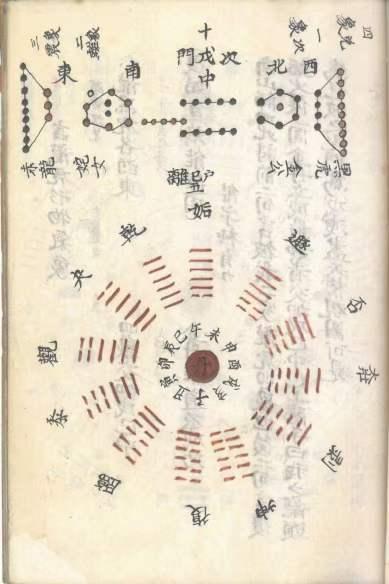 四
象兑
一
象次
十戊中
次門
二
象離
三
象震
西
北
南
東
黑虎
金公
姹女
赤龍
離
姤
遯
否
剥
坤
復
臨
泰
觀
夬
乾
午
未
申
酉
戌
亥
子
丑
寅
卯
辰
巳